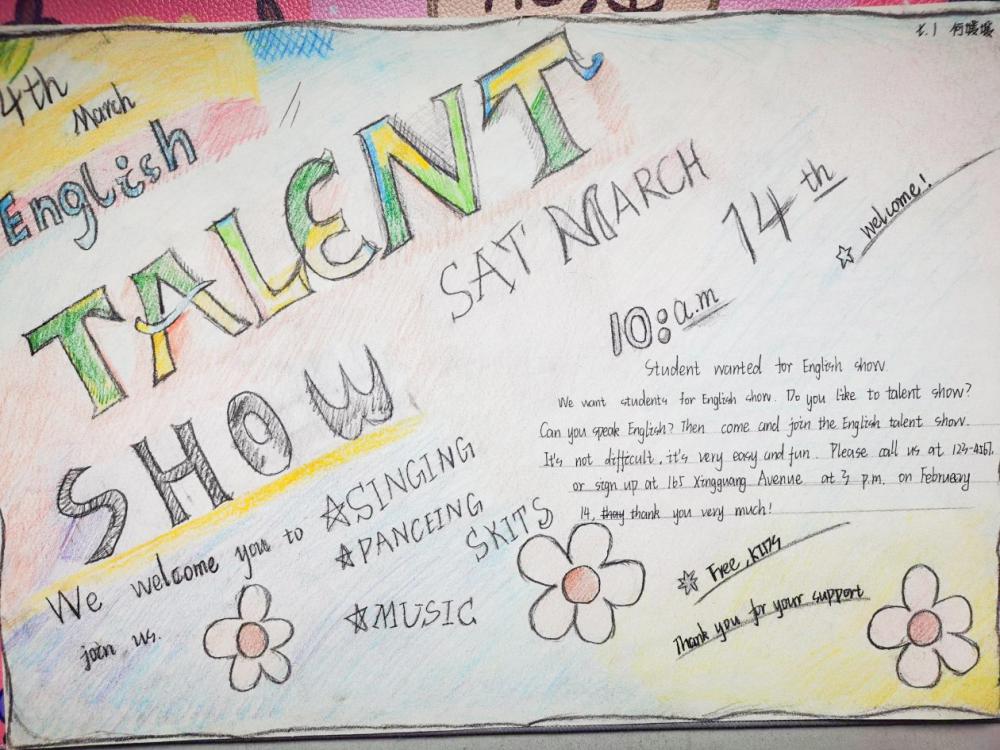 七.1 何暖暖
4th
March
English
TALENT
SHOW
SAT MARCH 14th
10:a.m
Welcome!
Student wanted for English show
We want students for English show. Do you like to talent show?
Can you speak English? Then come and join the English talent show.
It's not difficult, it's very easy and fun. Please call us at 123-4567.
or sign up at 165 Xingguang Avenue at 3 p.m. on February
14, thay thank you very much!
We welcome you to
join us.
SINGING
PANCEING
SKITS
MUSIC
Free,
Thank you for your support